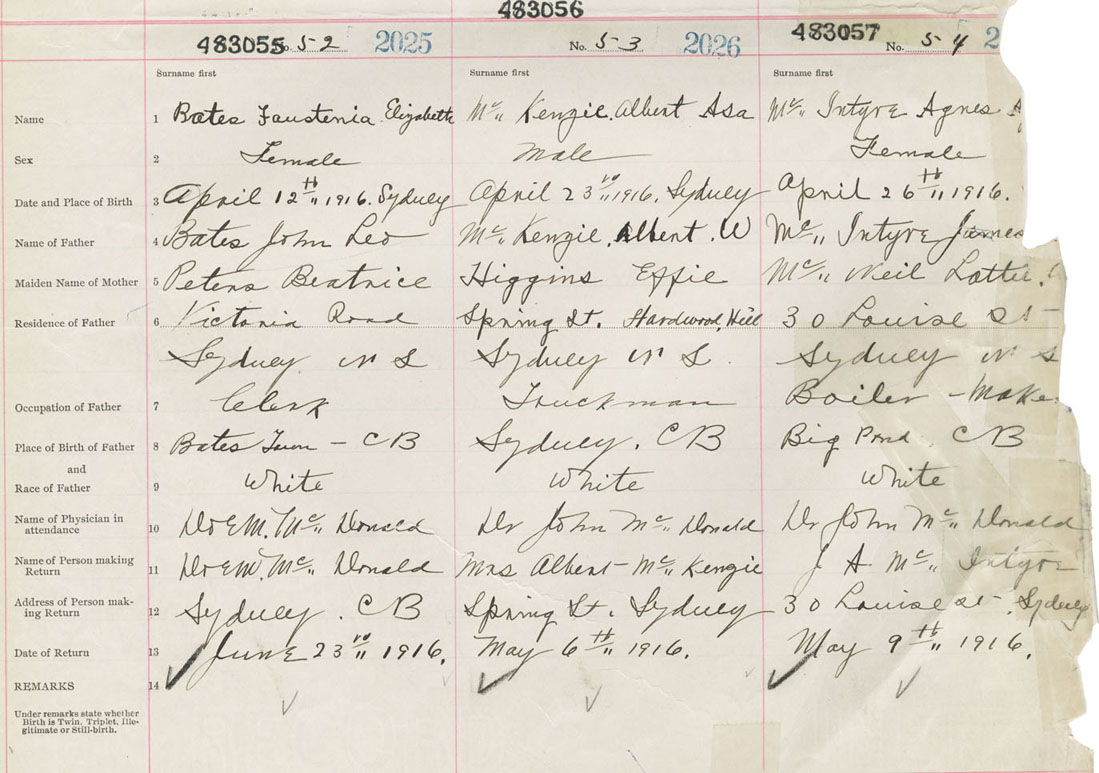 483055 483056 483057
No. 5-2 2025 No. 5-3 2026 No. 5-4 2
Surname first Surname first Surname first
Name 1 Bates Faustenia Elizabeth Mc,, Kenzie. Albert Asa Mc,, Intyre Agnes
Sex 2 Female Male Female
Date and Place of Birth 3 April 12th,, 1916. Sydney April 23rd,, 1916, Sydney April 26th,, 1916.
Name of Father 4 Bates John Leo Mc,, Kenzie. Albert. W Mc,, Intyre James
Maiden Name of Mother 5 Peters Beatrice Higgins Effie Mc,, Neil Lottie.
Residence of Father 6 Victoria Road Spring St. Hardwood, Hill 30 Louise St
Sydney N S Sydney N S. Sydney N S
Occupation of Father 7 Clerk Truckman Boiler - Make
Place of Birth of Father 8 Bates - C B Sydney. C B Big Pond. C B
and
Race of Father 9 White White White
Name of Physician in
attendance 10 Dr E M. Mc,, Donald Dr John Mc,, Donald Dr John Mc,, Donald
Name of Person making
Return 11 Dr E M. Mc,, Donald Mrs Albert Mc,, Kenzie J A Mc,, Intyre
Address of Person mak-
ing Return 12 Sydney. C B Spring St. Sydney 30 Louise St. Sydney
Date of Return 13 June 23rd,, 1916. May 6th,, 1916. May 9th,, 1916.
REMARKS 14
Under remarks state whether
Birth is Twin, Triplet, Ille-
gitimate or Still-birth.